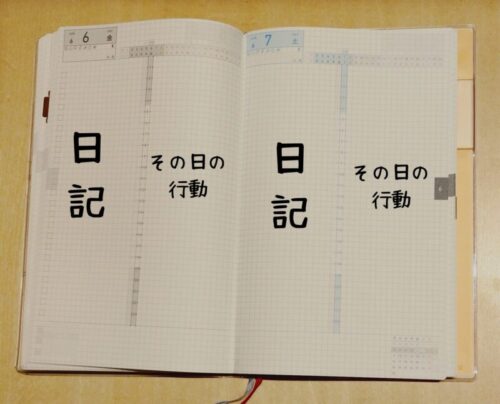 6 金
日
記
その日の
行動
7 土
日
記
その日の
行動